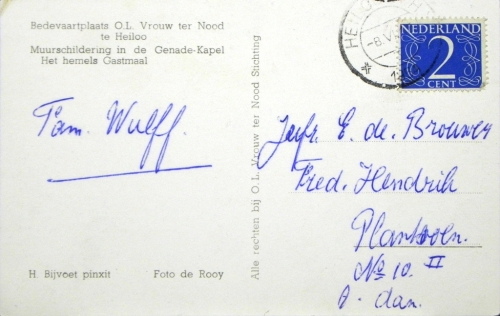 Bedevaartplaats O.L. Vrouw ter Nood
te Heiloo
Muurschildering in de Genade-Kapel
Het hemels Gastmaal
Fam. Wulff.
H. Bijvoet pinxit Foto de Rooy
Alle rechten bij O.L. Vrouw ter Nood Stichting
HEILO
-8.V
NEDERLAND
2
CENT
Jofr. E. de Brouwer
Fred. Hendrik
Plantsoen.
No 10 II
A-dam.